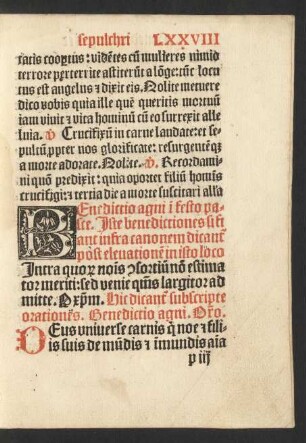 sepulchri LXXVIII
tatis coopertus: vidētes cū mulieres nimio
terrore perterrite astiterūt a lōge: tūc locu
tus est angelus ⁊ dixit eis. Nolite metuere
dico vobis quia ille quē queritis mortuū
iam viuit ⁊ vita hominū cū eo surrexit alle
luia. ℣ Crucifixū in carne laudate: et se
pultū ꝓpter nos glorificate: resurgentē qꝫ
a morte adorate. Nolite. ℣. Recordami
ni quō predixit: quia oportet filiū homīs
crucifigi: ⁊ tertia die a morte suscitari alla
BEnedictio agni ī festo pa
sce. Iste benedictiones si fi
ant infra canonem dicant̄
post eleuationē in isto loco
Intra quoꝝ noīs ↄsortiū nō estima
tor meriti: sed venie qūs largitor ad
mitte. P xp̄m. Hic dicant̄ subscripte
orationēs. Benedictio agni. Oro.
DEus vniuerse carnis q̄ noe ⁊ fili
is suis de mūdis ⁊ īmundis aīa
p iij